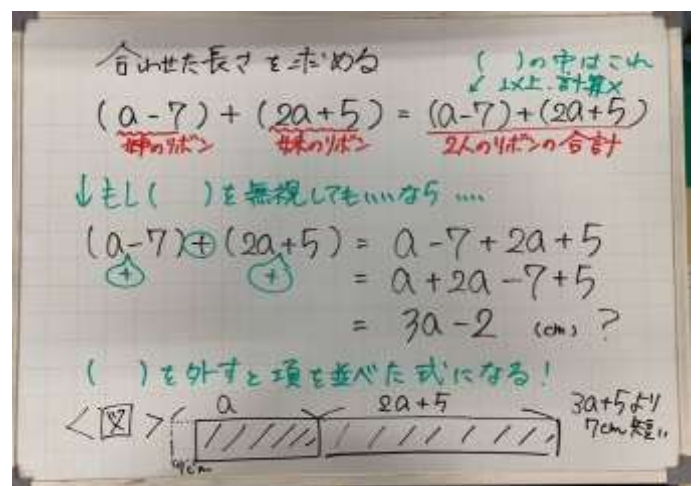 合わせた長さを求める
( )の中はこれ
以上、計算×
(a-7)+(2a+5)=(a-7)+(2a+5)
姉のリボン 妹のリボン 2人のリボンの合計
↓もし( )を無視してもいいなら....
(a-7)+(2a+5)=a-7+2a+5
+ + =a+2a-7+5
=3a-2 (cm)?
( )を外すと項を並べた式になる!
<図> a 2a+5 3a+5より
7cm 7cm短い